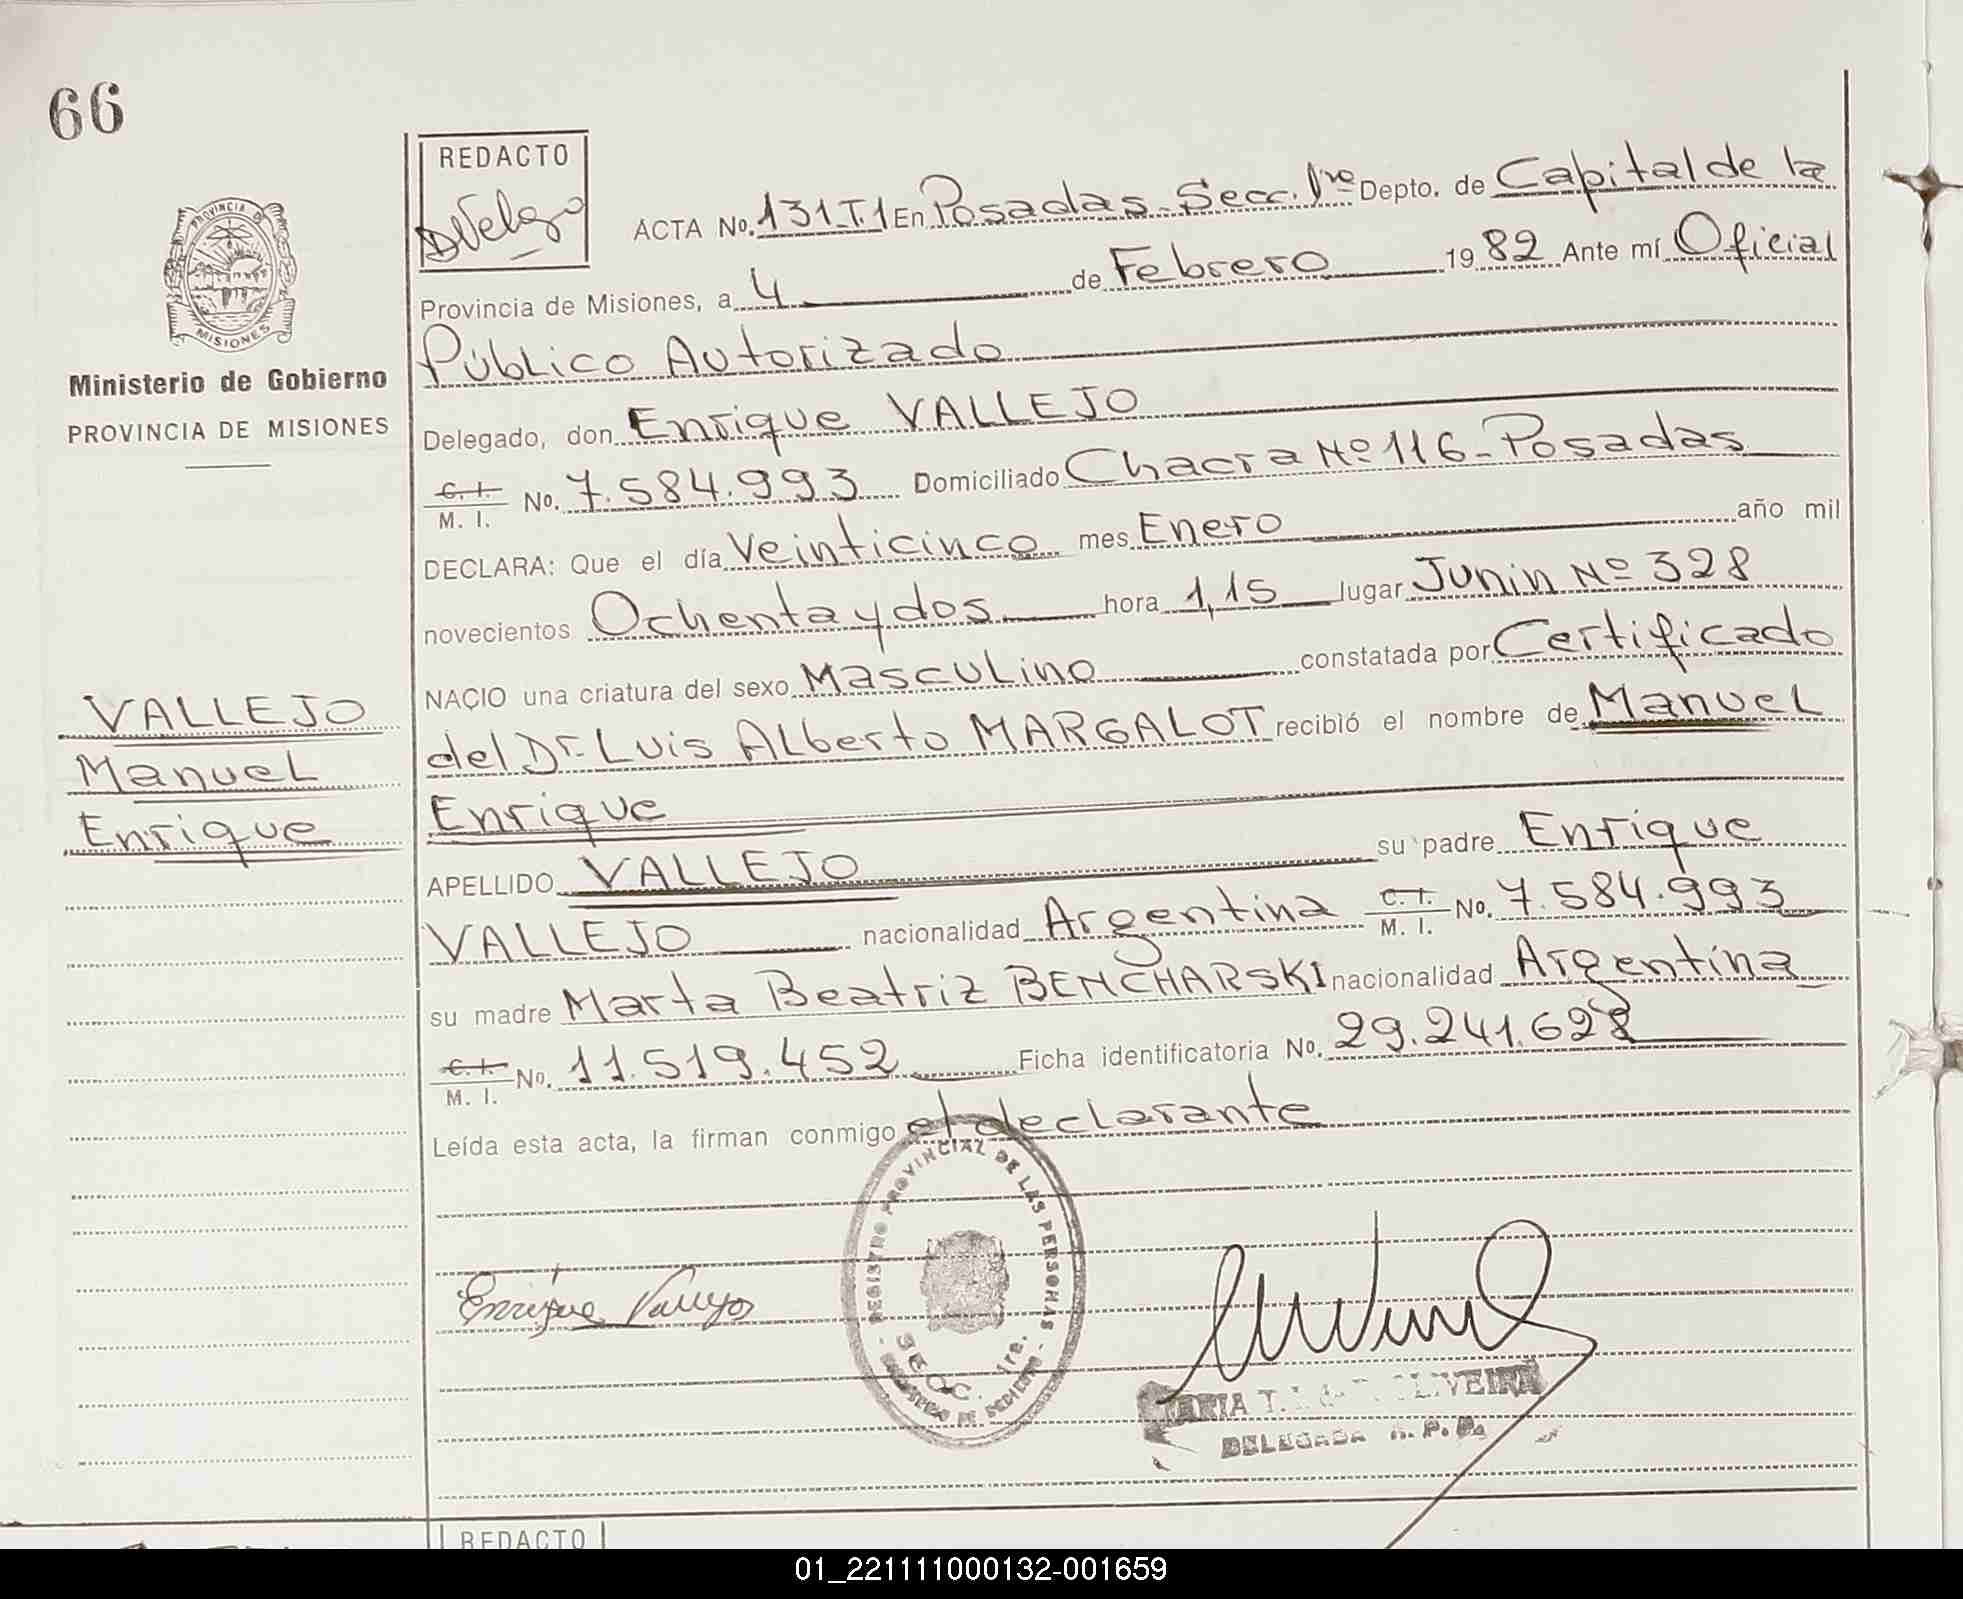 66
REDACTO
DVelozo
PROVINCIA DE
MISIONES
Ministerio de Gobierno
PROVINCIA DE MISIONES
VALLEJO
Manuel
Enrique
ACTA No. 131 T.1 En Posadas - Secc. 1ra Depto. de Capital de la
Provincia de Misiones, a 4 de Febrero 1982 Ante mí Oficial
Público Autorizado
Delegado, don Enrique VALLEJO
C. I. M. I. No. 7.584.993 Domiciliado Chacra Nº 116 - Posadas
DECLARA: Que el día Veinticinco mes Enero año mil
novecientos Ochenta y dos hora 1,15 lugar Junin Nº 328
NACIO una criatura del sexo Masculino constatada por Certificado
del Dr. Luis Alberto MARGALOT recibió el nombre de Manuel
Enrique
APELLIDO VALLEJO su padre Enrique
VALLEJO nacionalidad Argentina C. I. M. I. No. 7.584.993
su madre Marta Beatriz BENCHARSKI nacionalidad Argentina
C. I. M. I. No. 11.519.452 Ficha identificatoria No. 29.241.628
Leída esta acta, la firman conmigo el declarante
REGISTRO PROVINCIAL DE LAS PERSONAS
SECC. 1ra.
Enrique Vallejos
OLIVEIRA
DELEGADA R. P. P.
REDACTO
01_221111000132-001659